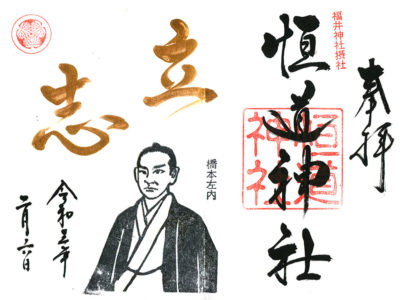 奉拝
福井神社摂社
恒道神社
恒道神社
立志
橋本左内
令和五年
二月六日